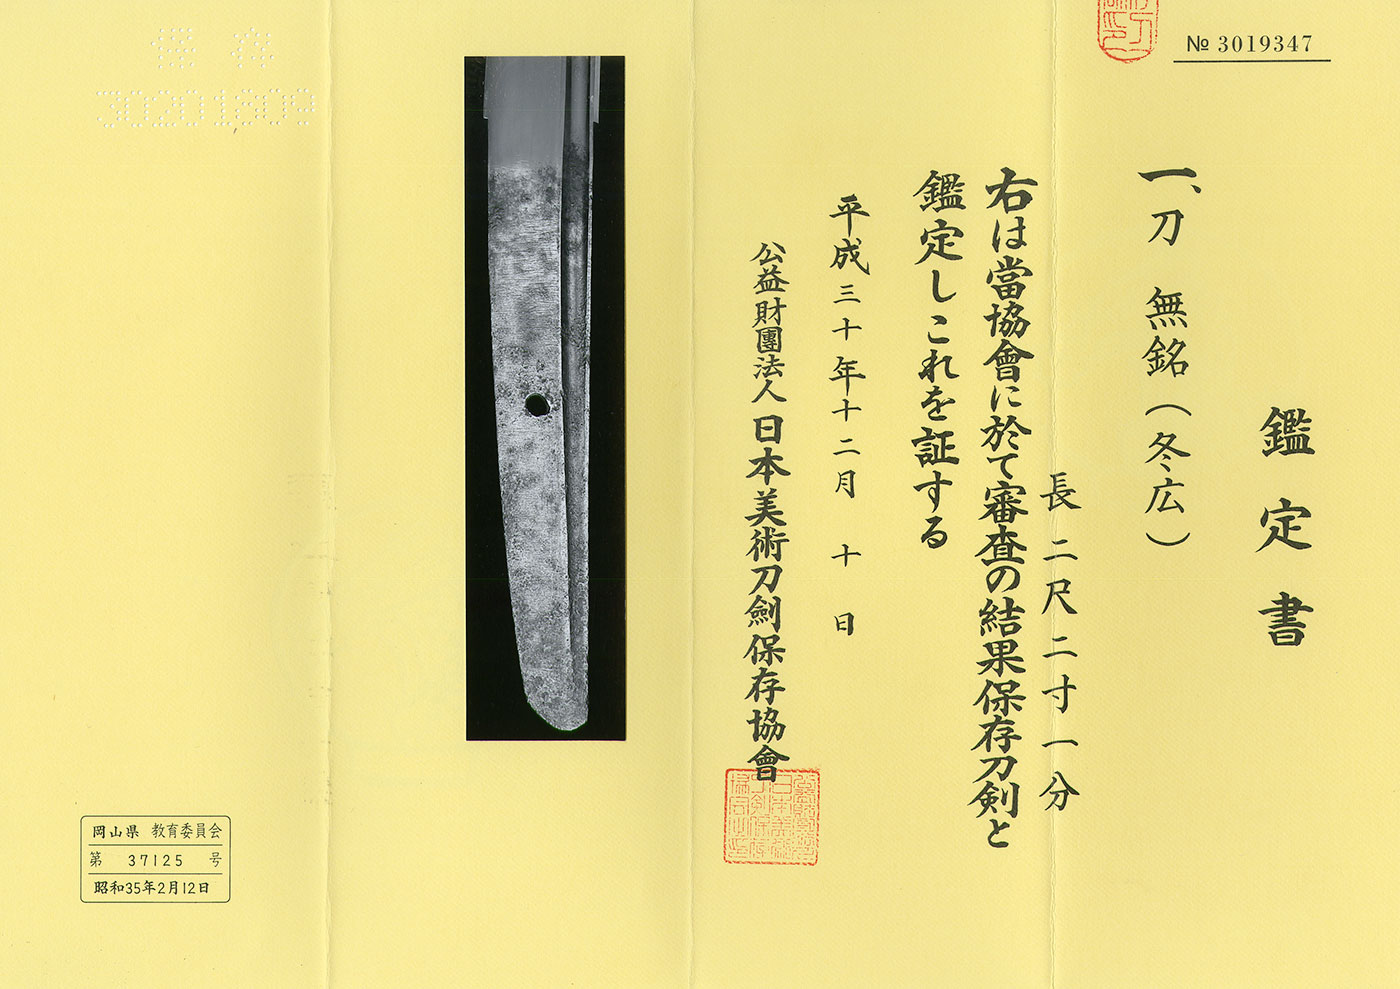 № 3019347
鑑定書
一、刀　無銘（冬広）
長二尺二寸一分
右は當協會に於て審査の結果保存刀剣と
鑑定しこれを証する
平成三十年十二月　十　日
公益財團法人日本美術刀劍保存協會
保存
30201809
岡山県　教育委員会
第　37125　号
昭和35年2月12日